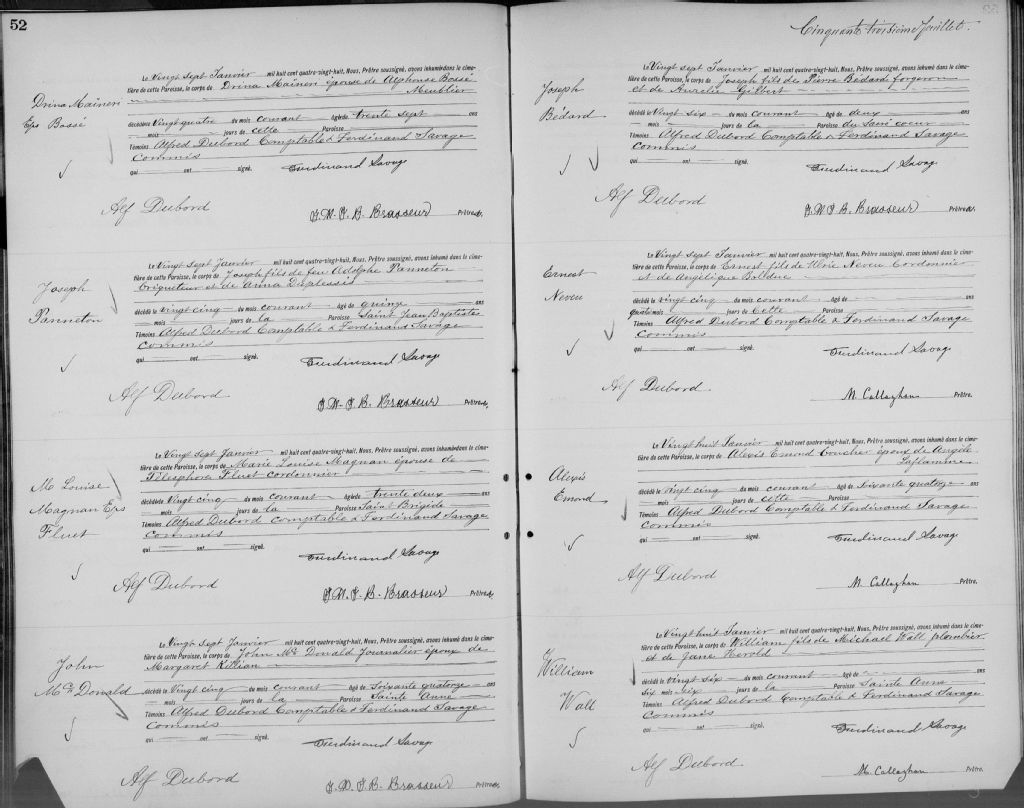 52
Drina Maineri
Eps Bossé
Le Vingt sept Janvier mil huit cent quatre-vingt-huit, Nous, Prêtre soussigné, avons inhumé dans le cime-
tière de cette Paroisse, le corps de Drina Maineri épouse de Alphonse Bossé
Meublier
décédée Vingt quatre du mois courant âgée de trente sept ans
mois jours de cette Paroisse
Témoins Alfred Dubord Comptable & Ferdinand Savage
Commis
qui ont signé. Ferdinand Savage
Alf Dubord
J. M. J. B. Brasseur Prêtre
Joseph
Panneton
Le Vingt sept Janvier mil huit cent quatre-vingt-huit, Nous, Prêtre soussigné, avons inhumé dans le cime-
tière de cette Paroisse, le corps de Joseph fils de feu Adolphe Panneton
briqueteur et de Anna Duplessis
décédé le vingt cinq du mois courant âgé de quinze ans
mois jours de la Paroisse Saint Jean Baptiste
Témoins Alfred Dubord Comptable & Ferdinand Savage
Commis
qui ont signé. Ferdinand Savage
Alf Dubord
J. M. J. B. Brasseur Prêtre
M. Louise
Magnan Eps
Fluet
Le Vingt sept Janvier mil huit cent quatre-vingt-huit, Nous, Prêtre soussigné, avons inhumé dans le cime-
tière de cette Paroisse, le corps de Marie Louise Magnan épouse de
Télesphore Fluet cordonnier
décédée Vingt cinq du mois courant âgée de trente deux ans
mois jours de la Paroisse Saint Brigide
Témoins Alfred Dubord Comptable & Ferdinand Savage
Commis
qui ont signé. Ferdinand Savage
Alf Dubord
J. M. J. B. Brasseur Prêtre
John
Mc Donald
Le Vingt sept Janvier mil huit cent quatre-vingt-huit, Nous, Prêtre soussigné, avons inhumé dans le cime-
tière de cette Paroisse, le corps de John Mc Donald Journalier époux de
Margaret Killian
décédé le Vingt cinq du mois courant âgé de Soixante quatorze ans
mois jours de la Paroisse Sainte Anne
Témoins Alfred Dubord Comptable & Ferdinand Savage
Commis
qui ont signé. Ferdinand Savage
Alf Dubord
J. M. J. B. Brasseur Prêtre
Cinquante troisième feuillet.
Joseph
Bédard
Le Vingt sept Janvier mil huit cent quatre-vingt-huit, Nous, Prêtre soussigné, avons inhumé dans le cime-
tière de cette Paroisse, le corps de Joseph fils de Pierre Bédard forgeron
et de Aurélie Gilbert
décédé le Vingt six du mois courant âgé de deux ans
mois jours de la Paroisse du Sacré coeur
Témoins Alfred Dubord Comptable & Ferdinand Savage
Commis
qui ont signé. Ferdinand Savage
Alf Dubord
J. M. J. B. Brasseur Prêtre
Ernest
Neveu
Le Vingt sept Janvier mil huit cent quatre-vingt-huit, Nous, Prêtre soussigné, avons inhumé dans le cime-
tière de cette Paroisse, le corps de Ernest fils de Neveu Cordonnier
et de Angélique Bolduc
décédé le vingt cinq du mois courant âgé de
mois jours de Cette Paroisse
Témoins Alfred Dubord Comptable & Ferdinand Savage
Commis
qui ont signé. Ferdinand Savage
Alf Dubord
M. Callaghan Prêtre.
Alexis
Emond
Le Vingt huit Janvier mil huit cent quatre-vingt-huit, Nous, Prêtre soussigné, avons inhumé dans le cime-
tière de cette Paroisse, le corps de Alexis Emond boucher époux de Angèle
Laflamme
décédé le vingt cinq du mois courant âgé de Soixante quatorze ans
mois jours de cette Paroisse
Témoins Alfred Dubord Comptable & Ferdinand Savage
Commis
qui ont signé. Ferdinand Savage
Alf Dubord
M. Callaghan Prêtre.
William
Wall
Le Vingt huit Janvier mil huit cent quatre-vingt-huit, Nous, Prêtre soussigné, avons inhumé dans le cime-
tière de cette Paroisse, le corps de William fils de Michael Wall plombier
et de Jane Herold
décédé le vingt six du mois courant âgé de ans
Six mois six jours de la Paroisse Sainte Anne
Témoins Alfred Dubord Comptable & Ferdinand Savage
Commis
qui ont signé. Ferdinand Savage
Alf Dubord
M. Callaghan Prêtre.